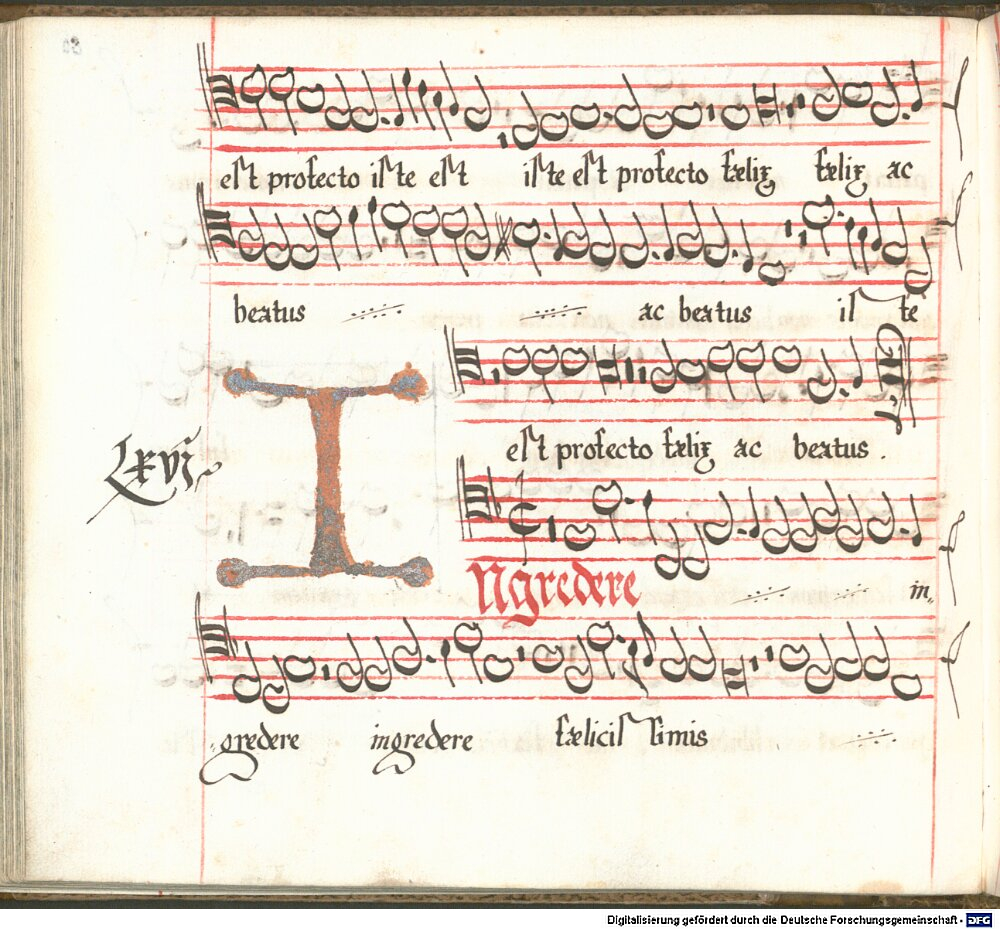 est profecto iste est iste est profecto fælix fælix ac
beatus ac beatus is te
est profecto fælix ac beatus
Lxvi
I
Ngredere in,
,gredere ingredere fælicis simis
Digitalisierung gefördert durch die Deutsche Forschungsgemeinschaft - DFG